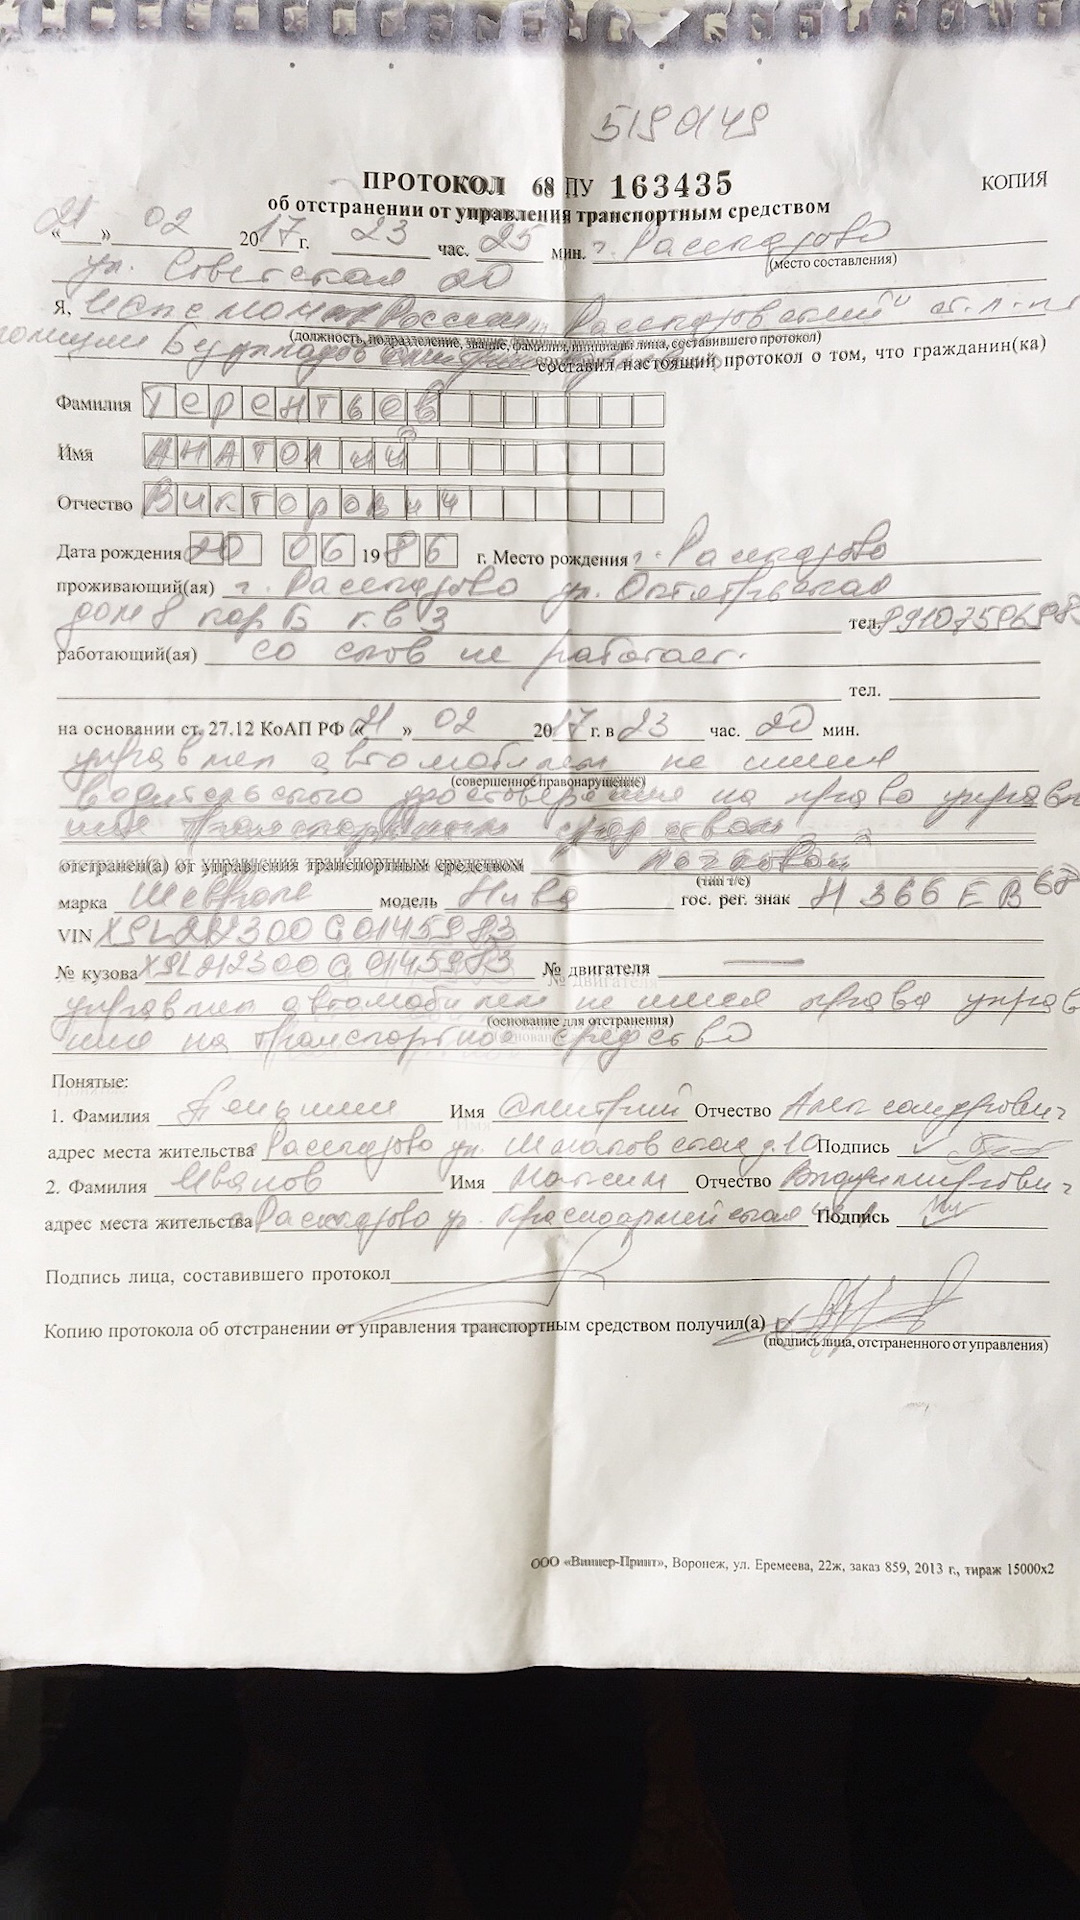 519 0149
ПРОТОКОЛ 68 ПУ 163435 КОПИЯ
об отстранении от управления транспортным средством
«21» 02 2017 г. 23 час. 25 мин. г. Рассказово
(место составления)
ул. Советская 20
Я, России Рассказовский ст. л-т
(должность, подразделение, звание, фамилия, инициалы лица, составившего протокол)
полиции составил настоящий протокол о том, что гражданин(ка)
Фамилия Терентьев
Имя Анатолий
Отчество Викторович
Дата рождения 20 06 1986 г. Место рождения г. Рассказово
проживающий(ая) г. Рассказово ул. Октябрьская
дом 8 кор Б кв 3 тел. 89107596983
работающий(ая) со слов не работает.
тел.
на основании ст. 27.12 КоАП РФ «21» 02 2017 г. в 23 час. 20 мин.
управлял автомобилем не имея
(совершенное правонарушение)
водительского удостоверения на право управле
ния транспортным средством
отстранен(а) от управления транспортным средством легковой
(тип т/с)
марка Шевроле модель Нива гос. рег. знак Н 366 ЕВ 68
VIN X9L212300C0145983
№ кузова X9L212300C0145983 № двигателя —
управлял автомобилем не имея права управле
(основание для отстранения)
ния на транспортное средство
Понятые:
1. Фамилия Имя Дмитрий Отчество Александрович
адрес места жительства Рассказово ул. д. 10 Подпись
2. Фамилия Иванов Имя Максим Отчество Владимирович
адрес места жительства Рассказово ул. Красноармейская Подпись
Подпись лица, составившего протокол
Копию протокола об отстранении от управления транспортным средством получил(а)
(подпись лица, отстраненного от управления)
ООО «Виннер-Принт», Воронеж, ул. Еремеева, 22ж, заказ 859, 2013 г., тираж 15000х2